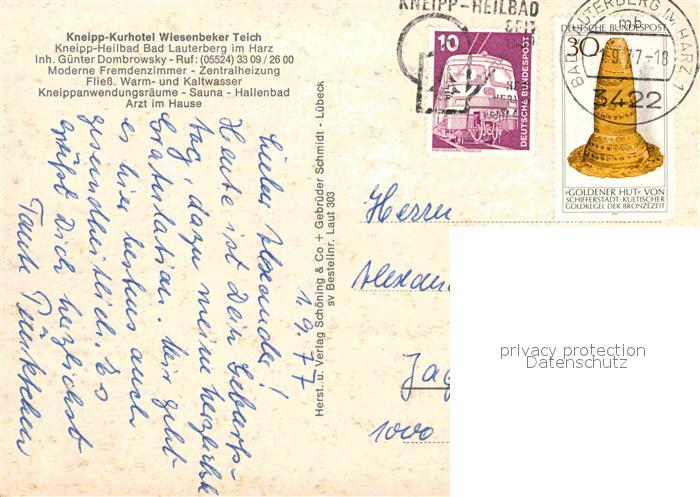 Kneipp-Kurhotel Wiesenbeker Teich
Kneipp-Heilbad Bad Lauterberg im Harz
Inh. Günter Dombrowsky - Ruf: (05524) 33 09 / 26 00
Moderne Fremdenzimmer - Zentralheizung
Fließ. Warm- und Kaltwasser
Kneippanwendungsräume - Sauna - Hallenbad
Arzt im Hause
1.9.77
Lieber Alexander!
Heute ist Dein Geburts-
tag, dazu meine herzliche
Gratulation. Mir geht
es hier bestens auch
gesundheitlich. Es
grüßt Dich herzlichst
Tante
Herst. u. Verlag Schöning & Co + Gebrüder Schmidt - Lübeck
sv Bestellnr. Laut 303
KNEIPP-HEILBAD
SEIT
10
DEUTSCHE BUNDESPOST
DEUTSCHE BUNDESPOST
30
»GOLDENER HUT« VON
SCHIFFERSTADT·KULTISCHER
GOLDKEGEL DER BRONZEZEIT
BAD LAUTERBERG IM HARZ 1
mb
-18
3422
Herrn
Alexan
Jag
1000
privacy protection
Datenschutz